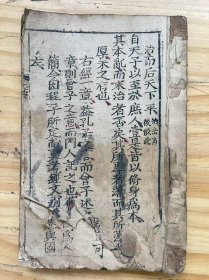 治而后天下平
自天子以至於庶人壹是皆以脩身為本
其本亂而末治者否矣其所厚者薄而其所薄
厚未之有也
右經一章蓋孔子言而曾子述
章則曾子之意而門人記之也舊
簡今因程子所定而更考經文別
左